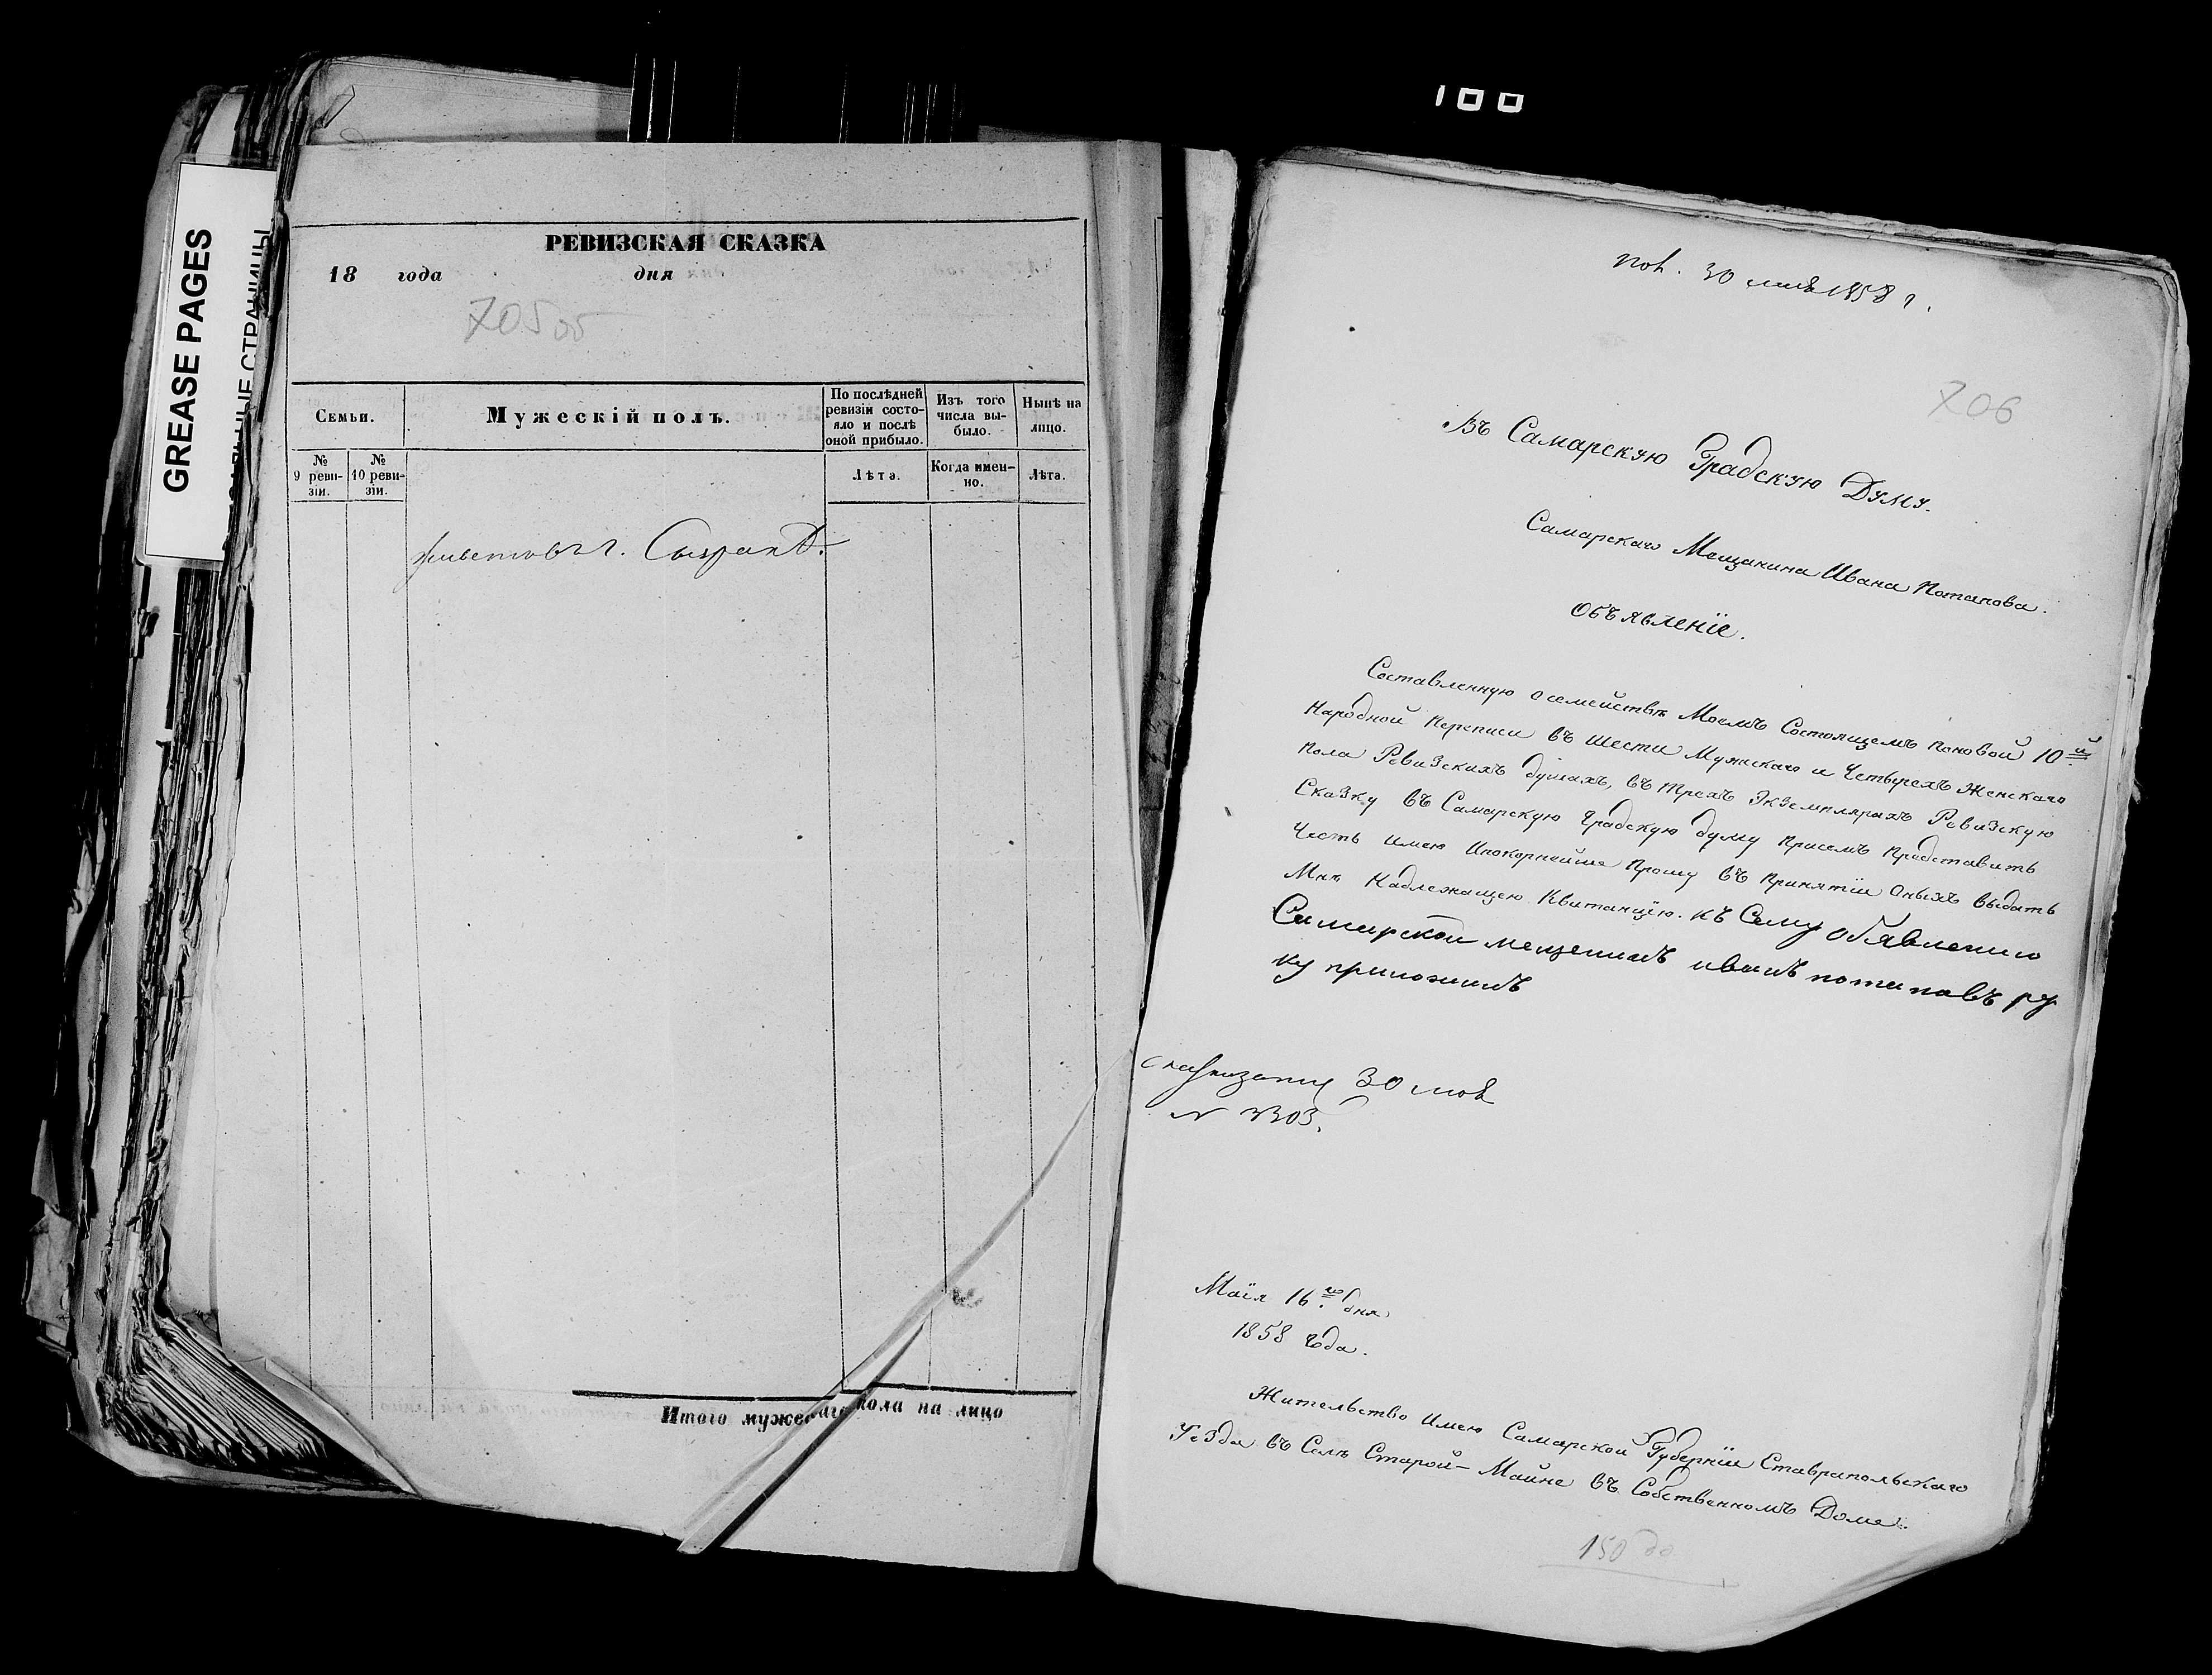 100
GREASE PAGES
РЕВИЗСКАЯ СКАЗКА
18 года дня
705 об
Семьи.
Мужескій полъ.
По послѣдней ревизіи состо-
яло и послѣ оной прибыло.
Изъ того числа вы-
было.
Нынѣ на лицо.
№ 9 реви-
зіи.
№ 10 реви-
зіи.
Лѣта.
Когда имен-
но.
Лѣта.
живетъ въ г.
Итого мужескаго пола на лицо
пол. 30 мая 1858 г.
706
Въ Самарскую Градскую Думу.
Самарскаго Мещанина Ивана Потапова.
Объявленіе.
Составленную о семействѣ Моемъ Состоящемъ поновой 10й
Народной Переписи въ шести Мужскаго и Четырехъ Женскаго
пола Ревизскихъ душахъ, въ трехъ Экземплярахъ Ревизскую
Сказку въ Самарскую Градскую думу присемъ представить
Честь имею Ипокорнейше прошу въ принятіи Оныхъ выдать
Мнѣ Надлежащею Квитанцію. къ Сему объявлению
Самарской мещенинъ иванъ потаповъ ру
ку приложилъ
30 мая
№ 3303.
Маія 16го дня
1858 года.
Жительство имею Самарской Губерніи Ставрапольскаго
Уезда въ Селѣ Старой-Майне въ Собственномъ Доме.
150